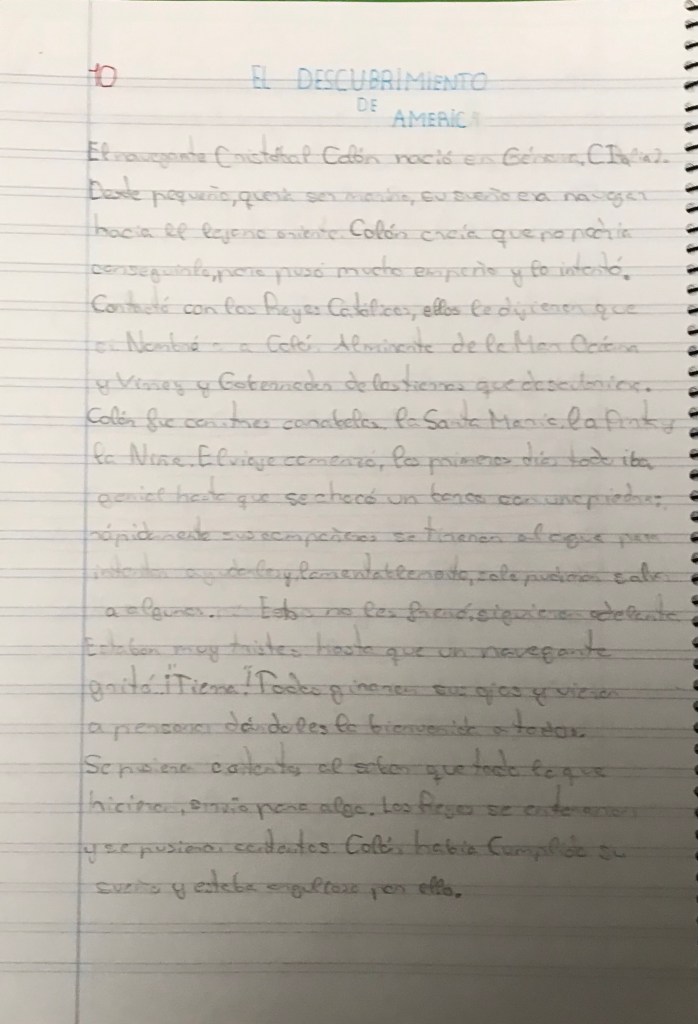 10 EL DESCUBRIMIENTO
DE
AMERICA
El navegante Cristóbal Colón nació en Génova, (Italia).
Desde pequeño, quería ser marino, su sueño era navegar
hacia el lejano oriente. Colón creía que no podría
conseguirlo, pero puso mucho empeño y lo intentó.
Contactó con los Reyes Católicos, ellos le dijeron que
Colón Almirante de la Mar Océana
y Virrey y Gobernador de las tierras que descubriera.
Colón fue con tres carabelas, la Santa María, la Pinta y
la Niña. El viaje comenzó, los primeros días todo iba
genial hasta que se chocó un barco con una piedra;
rápidamente sus compañeros se tiraron al agua para
intentar lamentablemente, solo pudieron
a algunos. Esto no les frenó, siguieron adelante.
Estaban muy tristes hasta que un navegante
gritó: "¡Tierra!" Todos giraron sus ojos y vieron
a personas dándoles la bienvenida a todos.
Se pusieron contentos al saber que todo lo que
hicieron, sirvió para algo. Los Reyes se enteraron
y se pusieron contentos. Colón había cumplido su
sueño y estaba por ello.